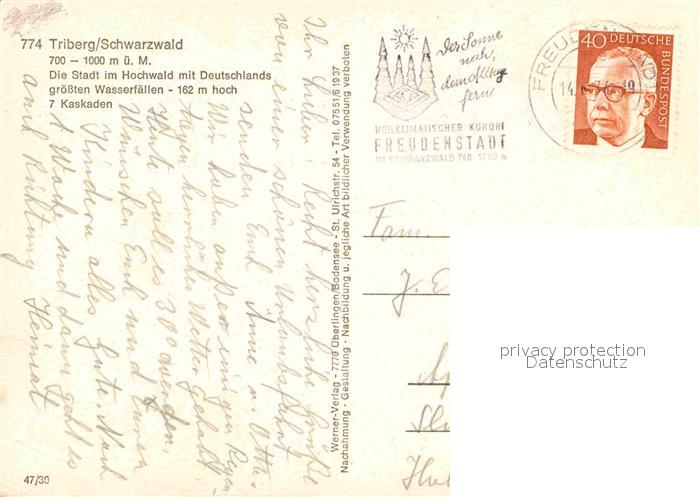 774 Triberg/Schwarzwald
700 — 1000 m ü. M.
Die Stadt im Hochwald mit Deutschlands
größten Wasserfällen - 162 m hoch
7 Kaskaden
Ihr Lieben! Recht herzliche Grüße
von einer schönen Urlaubsfahrt
senden Euch Änne u. Otto.
Wir haben außer einigen Regen-
tagen herrliches Wetter gehabt.
Heute soll es 30° werden.
Wünschen Euch und Euren
Kindern alles Gute. Noch
1 Woche und dann geht es
auch Richtung Heimat
Werner-Verlag - 7770 Überlingen/Bodensee - St. Ulrichstr. 54 - Tel. 07551/61937
Nachahmung - Gestaltung - Nachbildung u. jegliche Art bildlicher Verwendung verboten
Der Sonne
nah,
dem Alltag
fern
HEILKLIMATISCHER KURORT
FREUDENSTADT
IM SCHWARZWALD 740 1000 m
FREUDEN
14.
40 DEUTSCHE
BUNDESPOST
Fam.
J.
privacy protection
Datenschutz
47/30